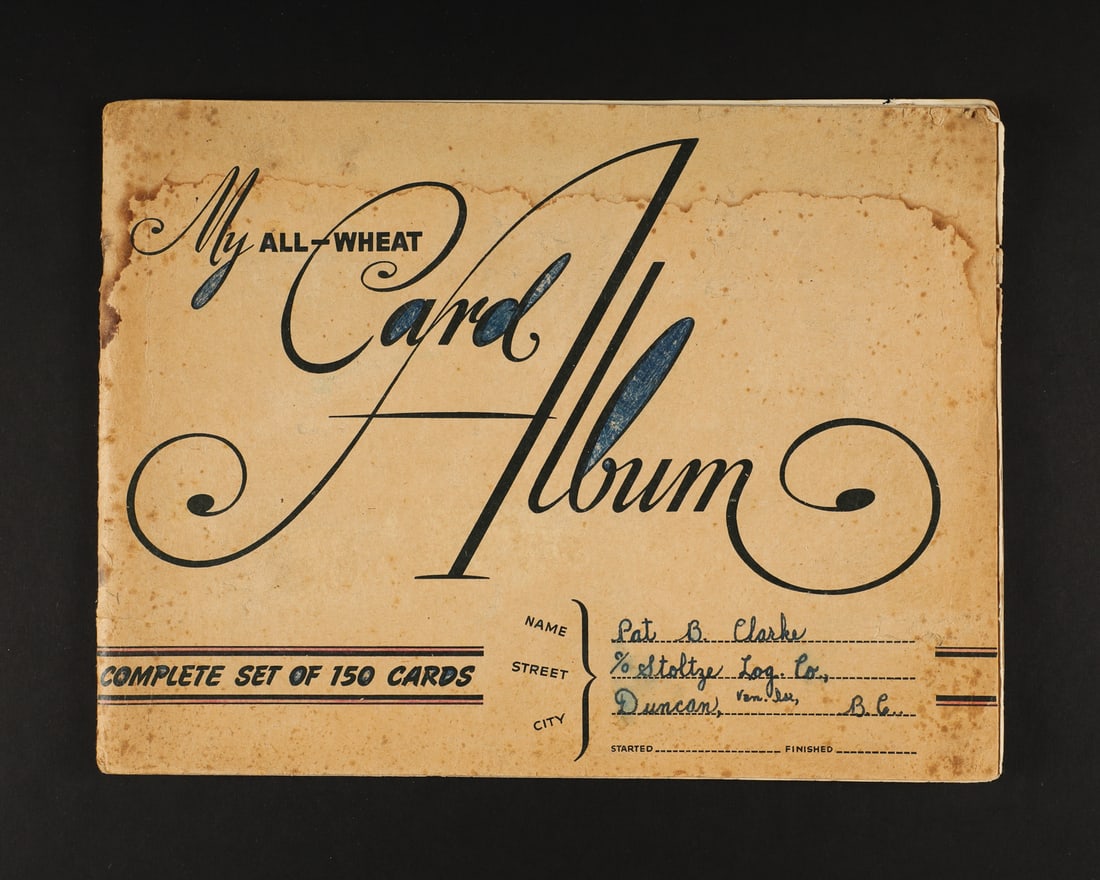 My ALL-WHEAT
Card
Album
COMPLETE SET OF 150 CARDS
NAME Pat B. Clarke
STREET % Stoltze Log. Co.,
CITY Duncan, Van. Isl, B.C.
STARTED FINISHED